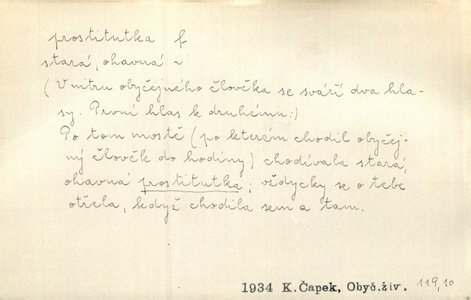 prostitutka f
stará, ohavná ~
(V nitru obyčejného člověka se sváří dva hla-
sy. První hlas k druhému:)
Po tom mostě (po kterém chodil obyčej-
ný člověk do hodiny) chodívala stará,
ohavná prostitutka; vždycky se o tebe
otřela, když chodila sem a tam.
1934 K.Čapek, Obyč.živ. 119,10